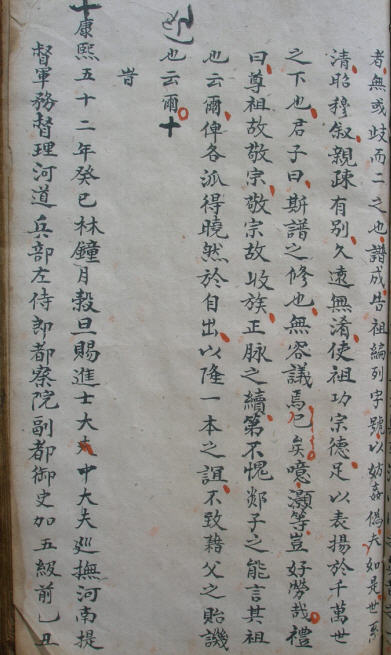 者無或歧而二之也譜成告祖編列字號以妨姦偽夫如是世系
清昭穆叙親疎有別久遠無淆使祖功宗德足以表揚於千萬世
之下也君子曰斯譜之修也無容議焉已矣噫灝等豈好勞哉禮
曰尊祖故敬宗敬宗故收族正脉之續第不愧郯子之能言其祖
也云爾俾各派得曉然於自出以隆一本之誼不致藉父之貽譏
也云爾
旹
康熙五十二年癸巳林鐘月穀旦賜進士大夫中大夫廵撫河南提
督軍務督理河道兵部左侍郎都察院副都御史加五級前乙丑